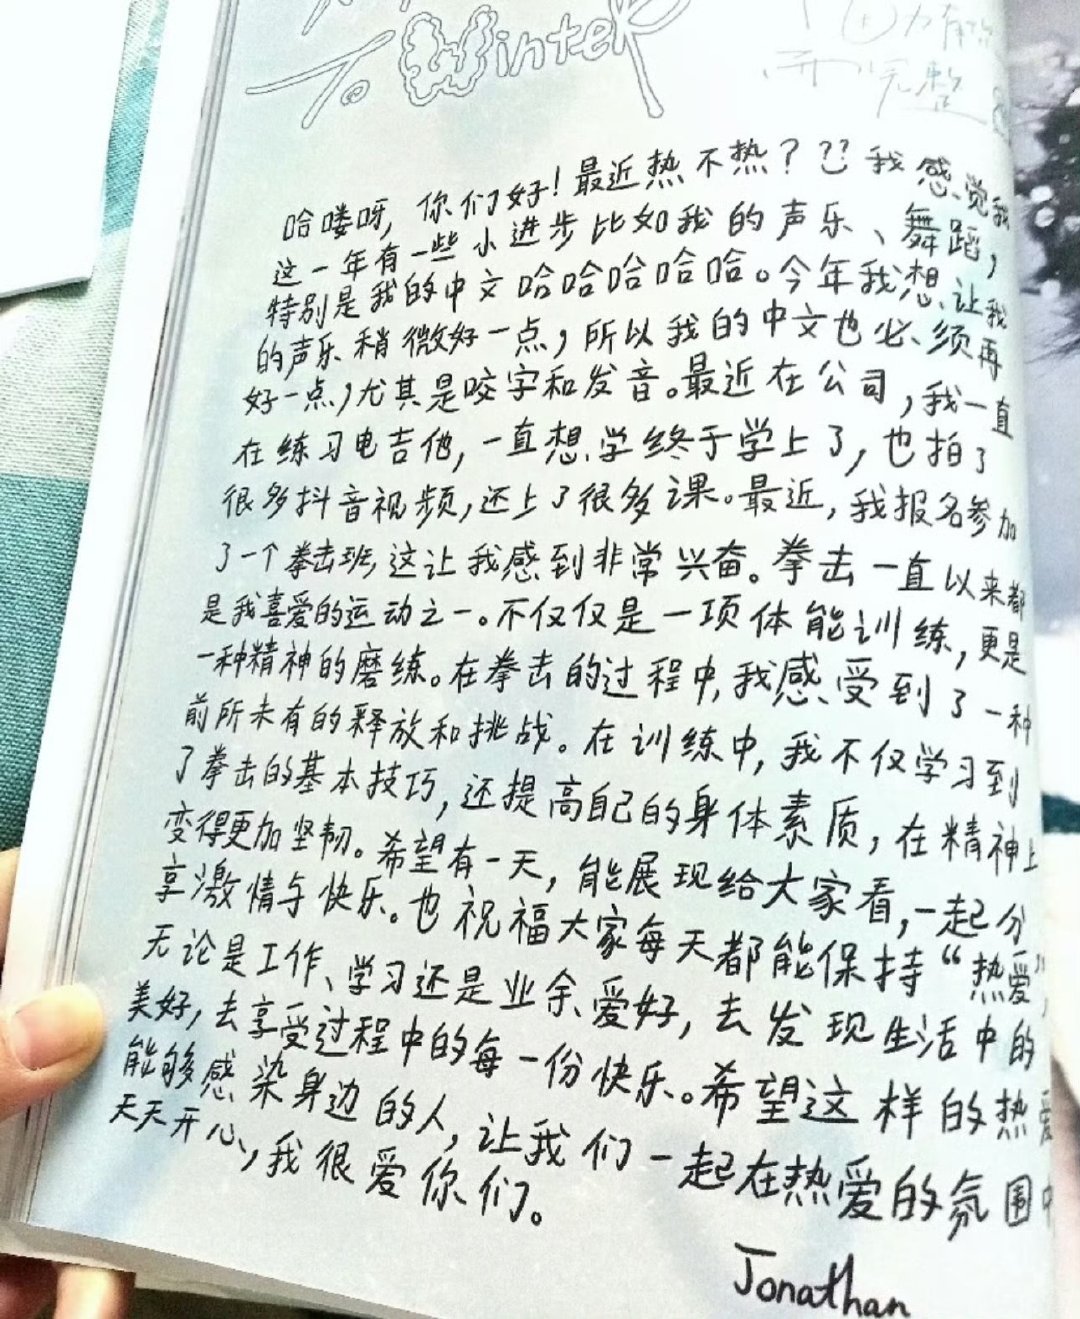 To Winter
而完整
哈喽呀, 你们好! 最近热不热? ?? 我感觉我
这一年有一些小进步比如我的声乐、舞蹈,
特别是我的中文哈哈哈哈哈。今年我想让我
的声乐稍微好一点, 所以我的中文也必须再
好一点, 尤其是咬字和发音。最近在公司, 我一直
在练习电吉他, 一直想学终于学上了, 也拍了
很多抖音视频, 还上了很多课。最近, 我报名参加
了一个拳击班, 这让我感到非常兴奋。拳击一直以来都
是我喜爱的运动之一。不仅仅是一项体能训练, 更是
一种精神的磨练。在拳击的过程中, 我感受到了一种
前所未有的释放和挑战。在训练中, 我不仅学习到
了拳击的基本技巧, 还提高自己的身体素质, 在精神上
变得更加坚韧。希望有一天, 能展现给大家看, 一起分
享激情与快乐。也祝福大家每天都能保持“热爱”,
无论是工作、学习还是业余爱好, 去发现生活中的
美好, 去享受过程中的每一份快乐。希望这样的热爱
能够感染身边的人, 让我们一起在热爱的氛围中
天天开心, 我很爱你们。
Jonathan